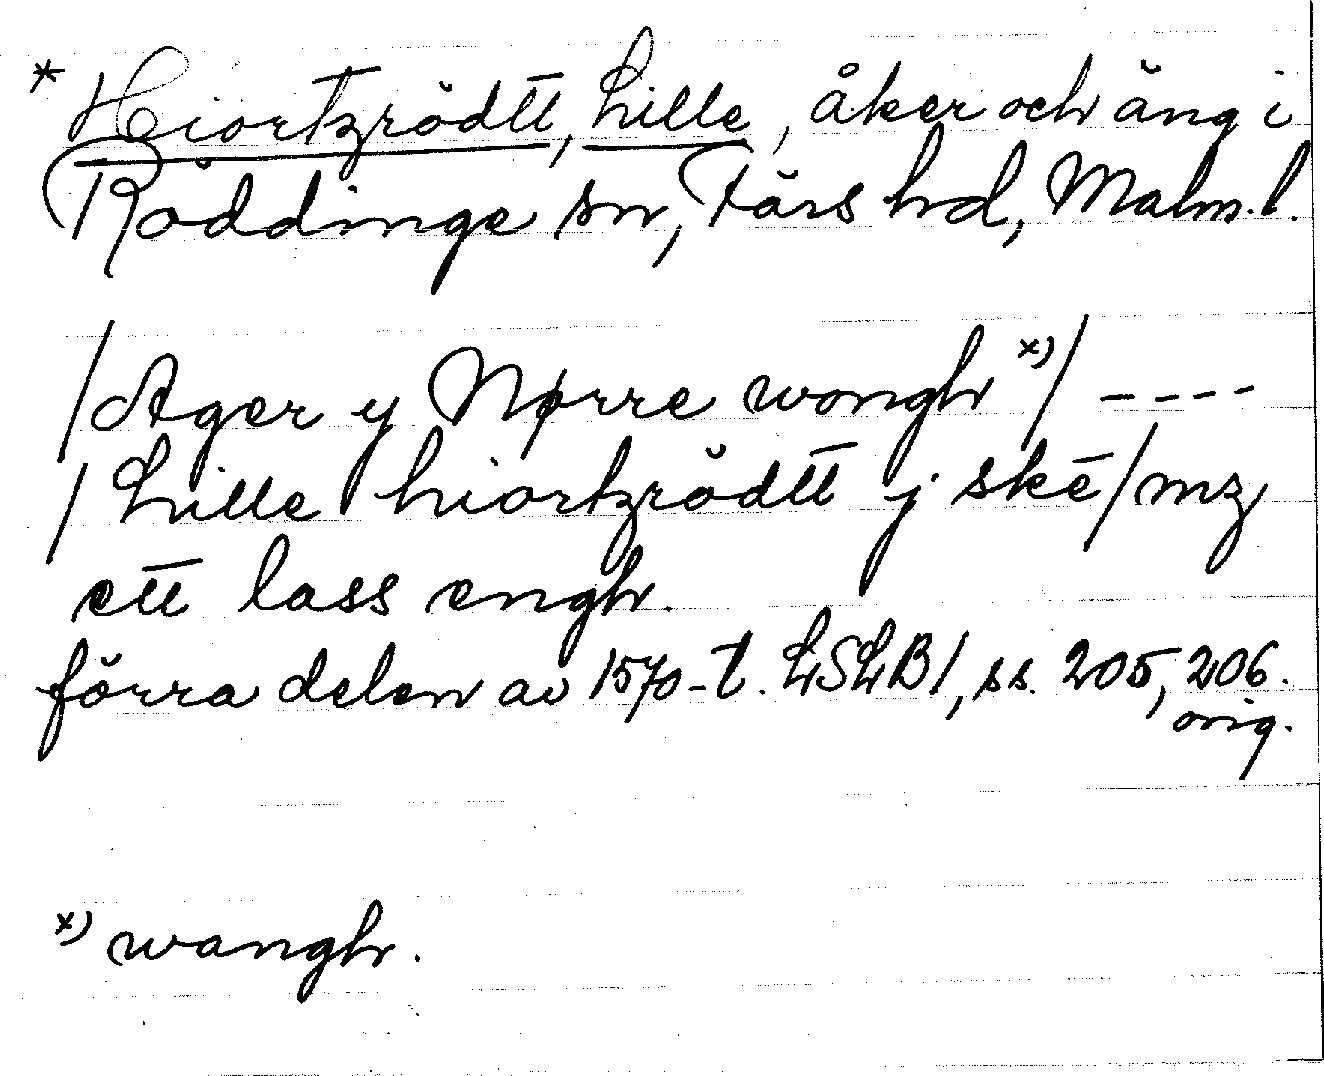 * Hiortzrödtt, Lille, åker och äng i
Röddinge sn, Färs hd, Malm.l.
/Ager y Nørre wongh x)/ ----
/Lille hiortzrödtt j skē/mz
ett lass engh.
förra delen av 1570-t. LSLB1, ss. 205, 206.
orig.
x) wangh.